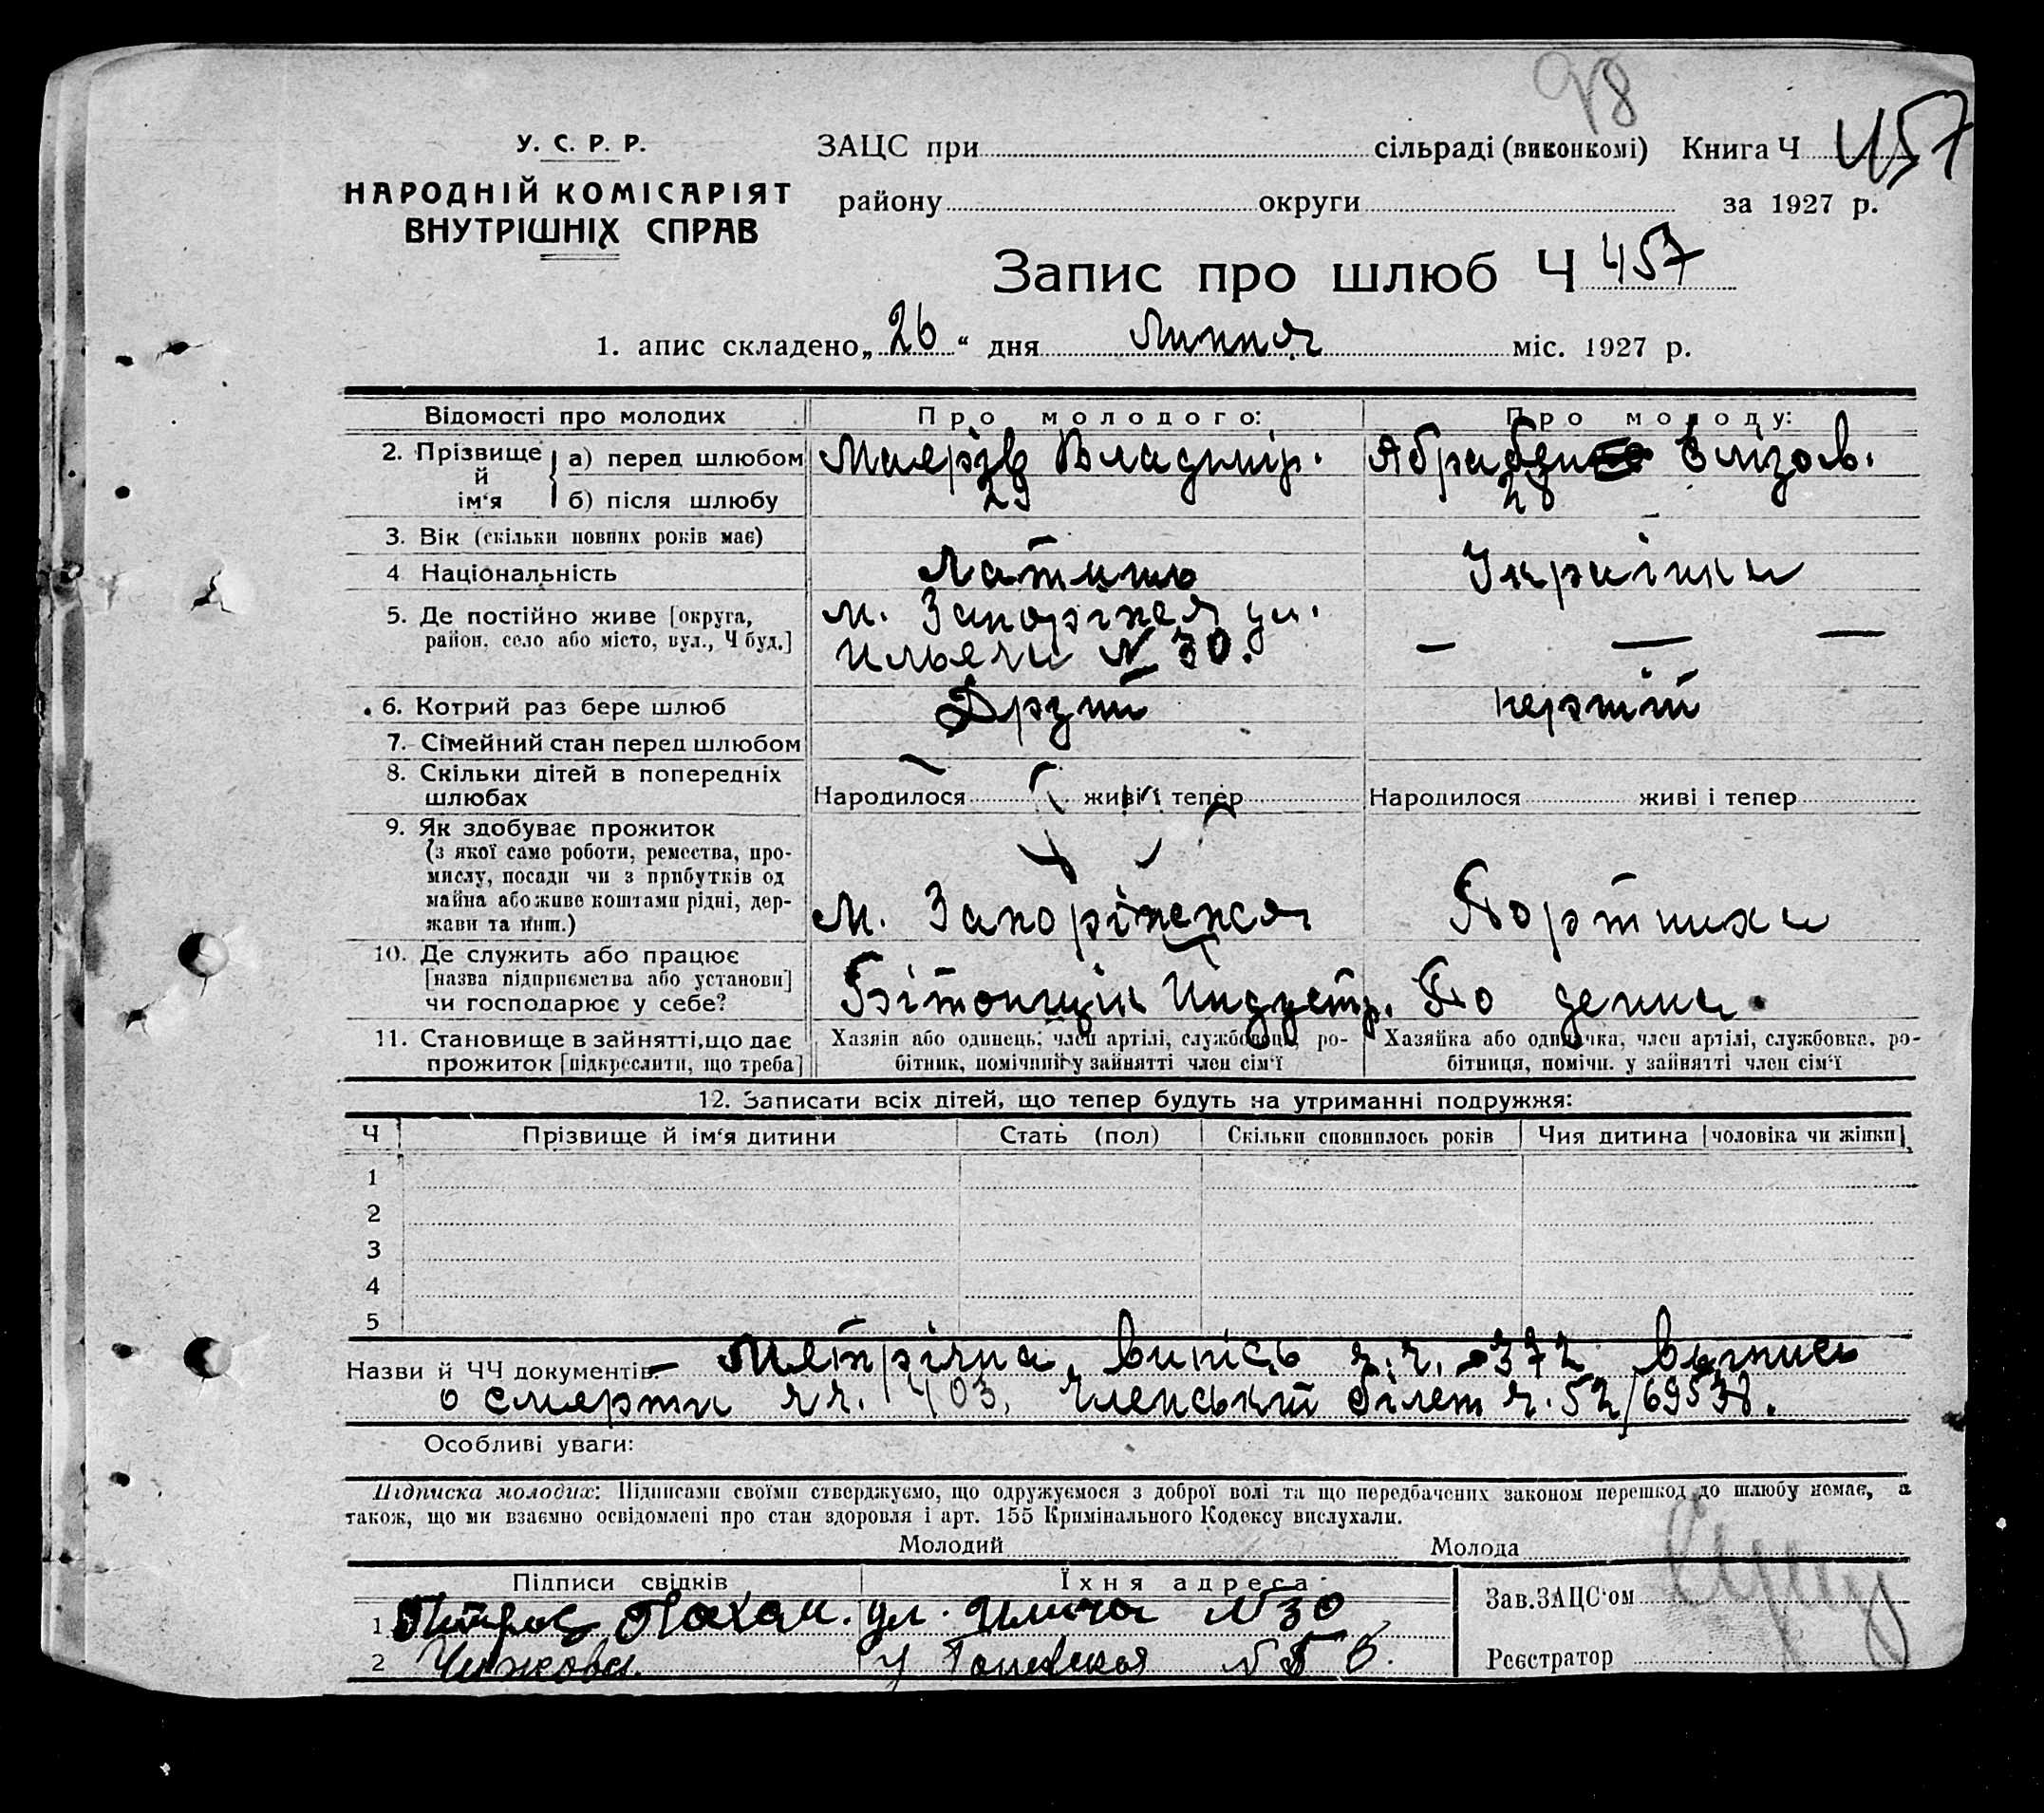 98
У. С. Р. Р.
НАРОДНІЙ КОМІСАРІЯТ
ВНУТРІШНІХ СПРАВ
ЗАЦС при сільраді (виконкомі) Книга Ч 457
району округи за 1927 р.
Запис про шлюб Ч 457
1. апис складено „26“ дня Липня міс. 1927 р.
Відомості про молодих Про молодого: Про молоду:
2. Прізвище й ім‘я а) перед шлюбом Владимір. Елізов.
б) після шлюбу 29 28
3. Вік (скільки повних років має)
4 Національність Латиш Українка
5. Де постійно живе [округа, м. Запоріжжя ул.
район, село або місто, вул., Ч буд.] Ильяча № 30. — — —
6. Котрий раз бере шлюб Другий перший
7. Сімейний стан перед шлюбом
8. Скільки дітей в попередніх
шлюбах Народилося живі і тепер Народилося живі і тепер
9. Як здобуває прожиток
(з якої само роботи, ремества, про-
мислу, посади чи з прибутків од
майна або живе коштами рідні, дер-
жави та инш.) м. Запоріжжя Портниха
10. Де служить або працює
[назва підприємства або установи]
чи господарює у себе? Индустр. По
11. Становище в зайнятті, що дає Хазяін або одинець, член артілі, службовець, ро- Хазяйка або одиначка, член артілі, службовка, ро-
прожиток [підкреслити, що треба] бітник, помічний у зайнятті член сім‘ї бітниця, помічн. у зайнятті член сім‘ї
12. Записати всіх дітей, що тепер будуть на утриманні подружжя:
Ч Прізвище й ім‘я дитини Стать (пол) Скільки сповнилось років Чия дитина [чоловіка чи жінки]
1
2
3
4
5
Назви й ЧЧ документів: Метрічна Випісь ч.ч. 372 Выпись
о смерти чч. 403, Членський білет ч. 52/69538.
Особливі уваги:
Підписка молодих: Підписами своїми стверджуємо, що одружуємося з доброї волі та що передбачених законом перешкод до шлюбу немає, а
також, що ми взаємно освідомлені про стан здоровля і арт. 155 Кримінального Кодексу вислухали.
Молодий Молода
Підписи свідків Їхня адреса
1 ул. Илича № 30
2 Чижова
Зав. ЗАЦС‘ом
Реєстратор